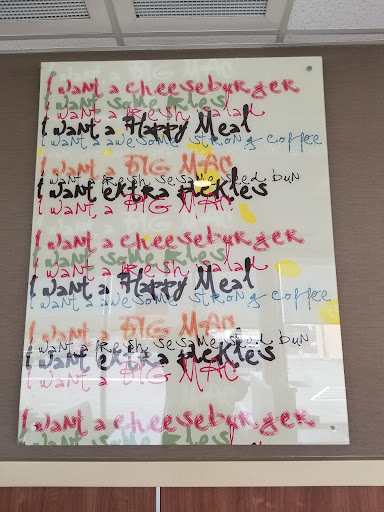 I want a cheeseburger
I want some fries
I want a fresh salad
I want a Happy Meal
I want a awesome strong coffee
I want a BIG MAC
I want fresh sesame seed bun
I want extra pickles
I want a BIG MAC
I want a cheeseburger
I want some fries
I want a fresh salad
I want a Happy Meal
I want a awesome strong coffee
I want a BIG MAC
I want a fresh sesame seed bun
I want extra pickles
I want a BIG MAC
I want a cheeseburger
I want some fries